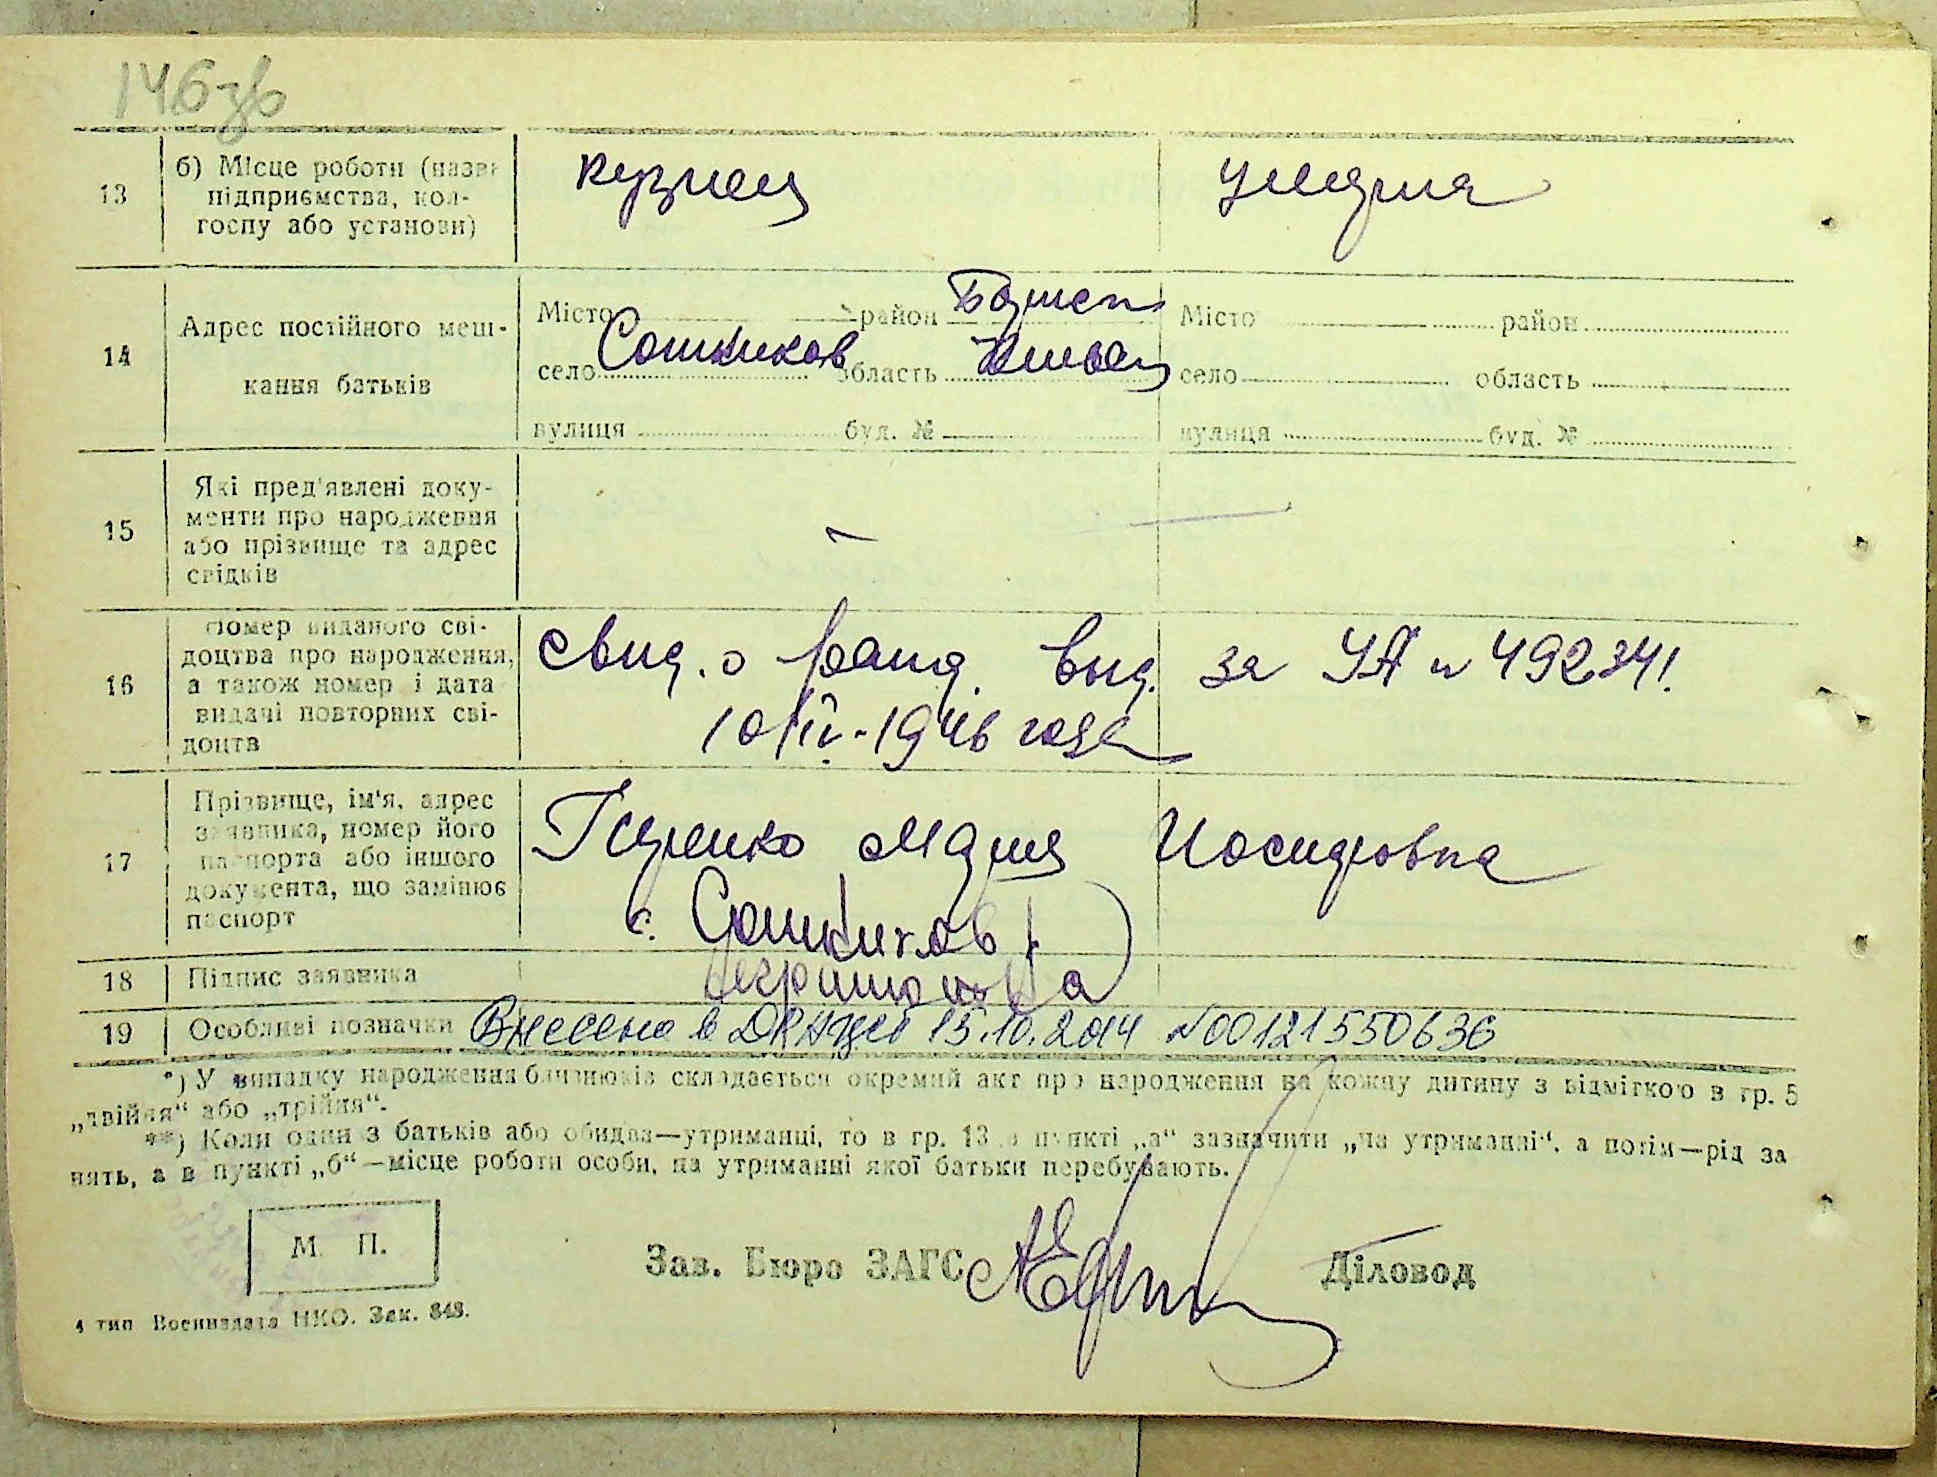 146 зв
13 б) Місце роботи (назва підприємства, колгоспу або установи) кузнец
14 Адрес постійного мешкання батьків
Місто район Місто район
село Сошников область село область
вулиця буд. № вулиця буд. №
15 Які пред'явлені документи про народження або прізвище та адрес свідків —
16 Номер виданого свідоцтва про народження, а також номер і дата видачі повторних свідоцтв
свид. о рожд. выд. за УА № 492341.
10/IV-1946 года
17 Прізвище, ім'я, адрес заявника, номер його паспорта або іншого документа, що замінює паспорт
Мария Иосидовна
с. Сошников
18 Підпис заявника
19 Особливі позначки Внесено в ДРАЦСГ 15.10.2014 №00121550636
*) У випадку народження близнюків складається окремий акт про народження на кожну дитину з відміткою в гр. 5
„двійня“ або „трійня“.
**) Коли один з батьків або обидва—утриманці, то в гр. 13 в пункті „а“ зазначити „на утриманні“, а потім—рід за
нять, а в пункті „б“—місце роботи особи, на утриманні якої батьки перебувають.
М. П.
Зав. Бюро ЗАГС Діловод
4 тип Воениздата НКО. Зак. 843.